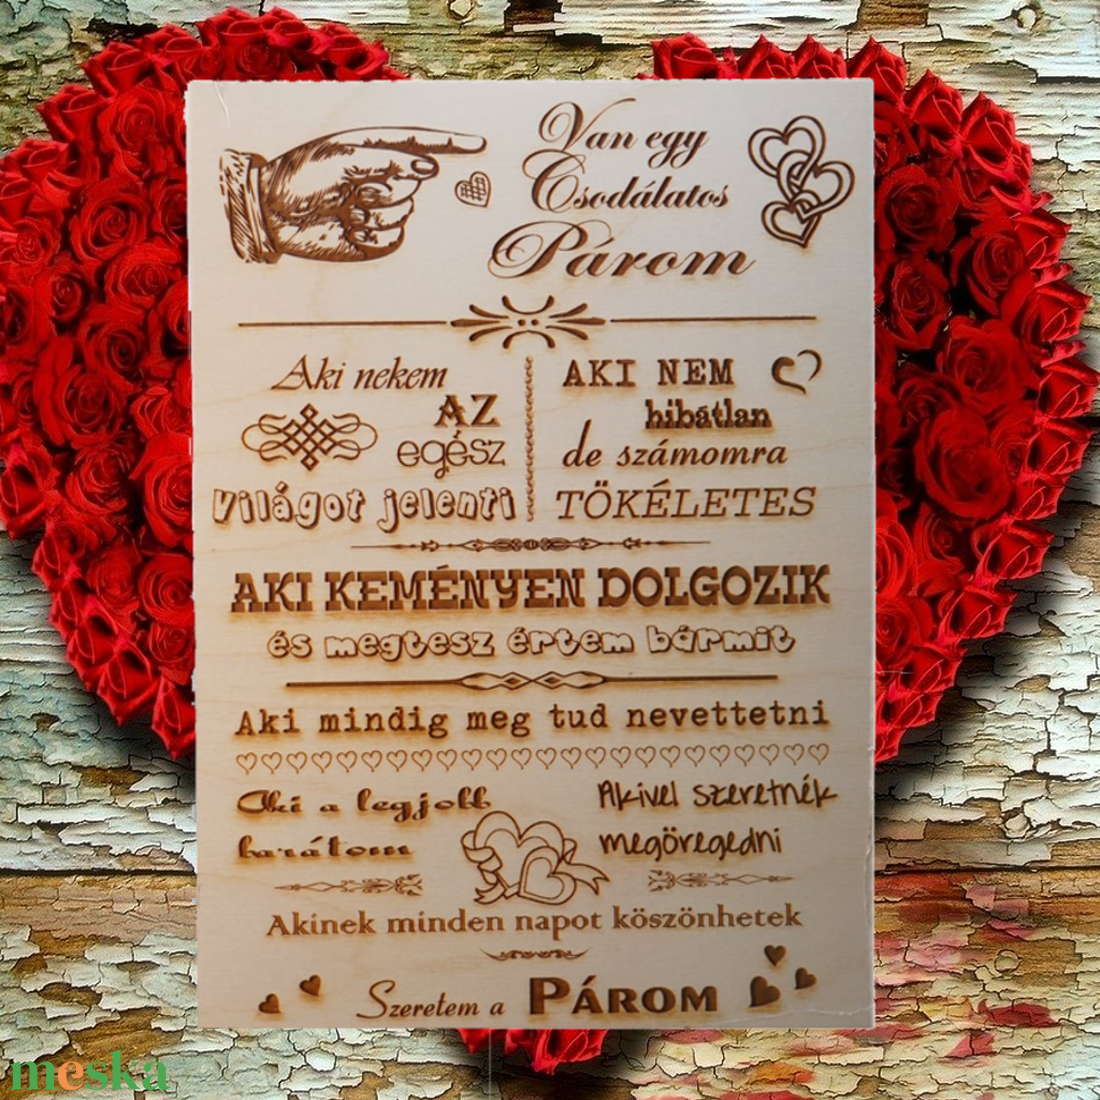 Van egy
Csodálatos
Párom
Aki nekem
AZ
egész
Világot jelenti
AKI NEM
hibátlan
de számomra
TÖKÉLETES
AKI KEMÉNYEN DOLGOZIK
és megtesz értem bármit
Aki mindig meg tud nevettetni
Aki a legjobb
barátom
Akivel szeretnék
megöregedni
Akinek minden napot köszönhetek
Szeretem a PÁROM
meska